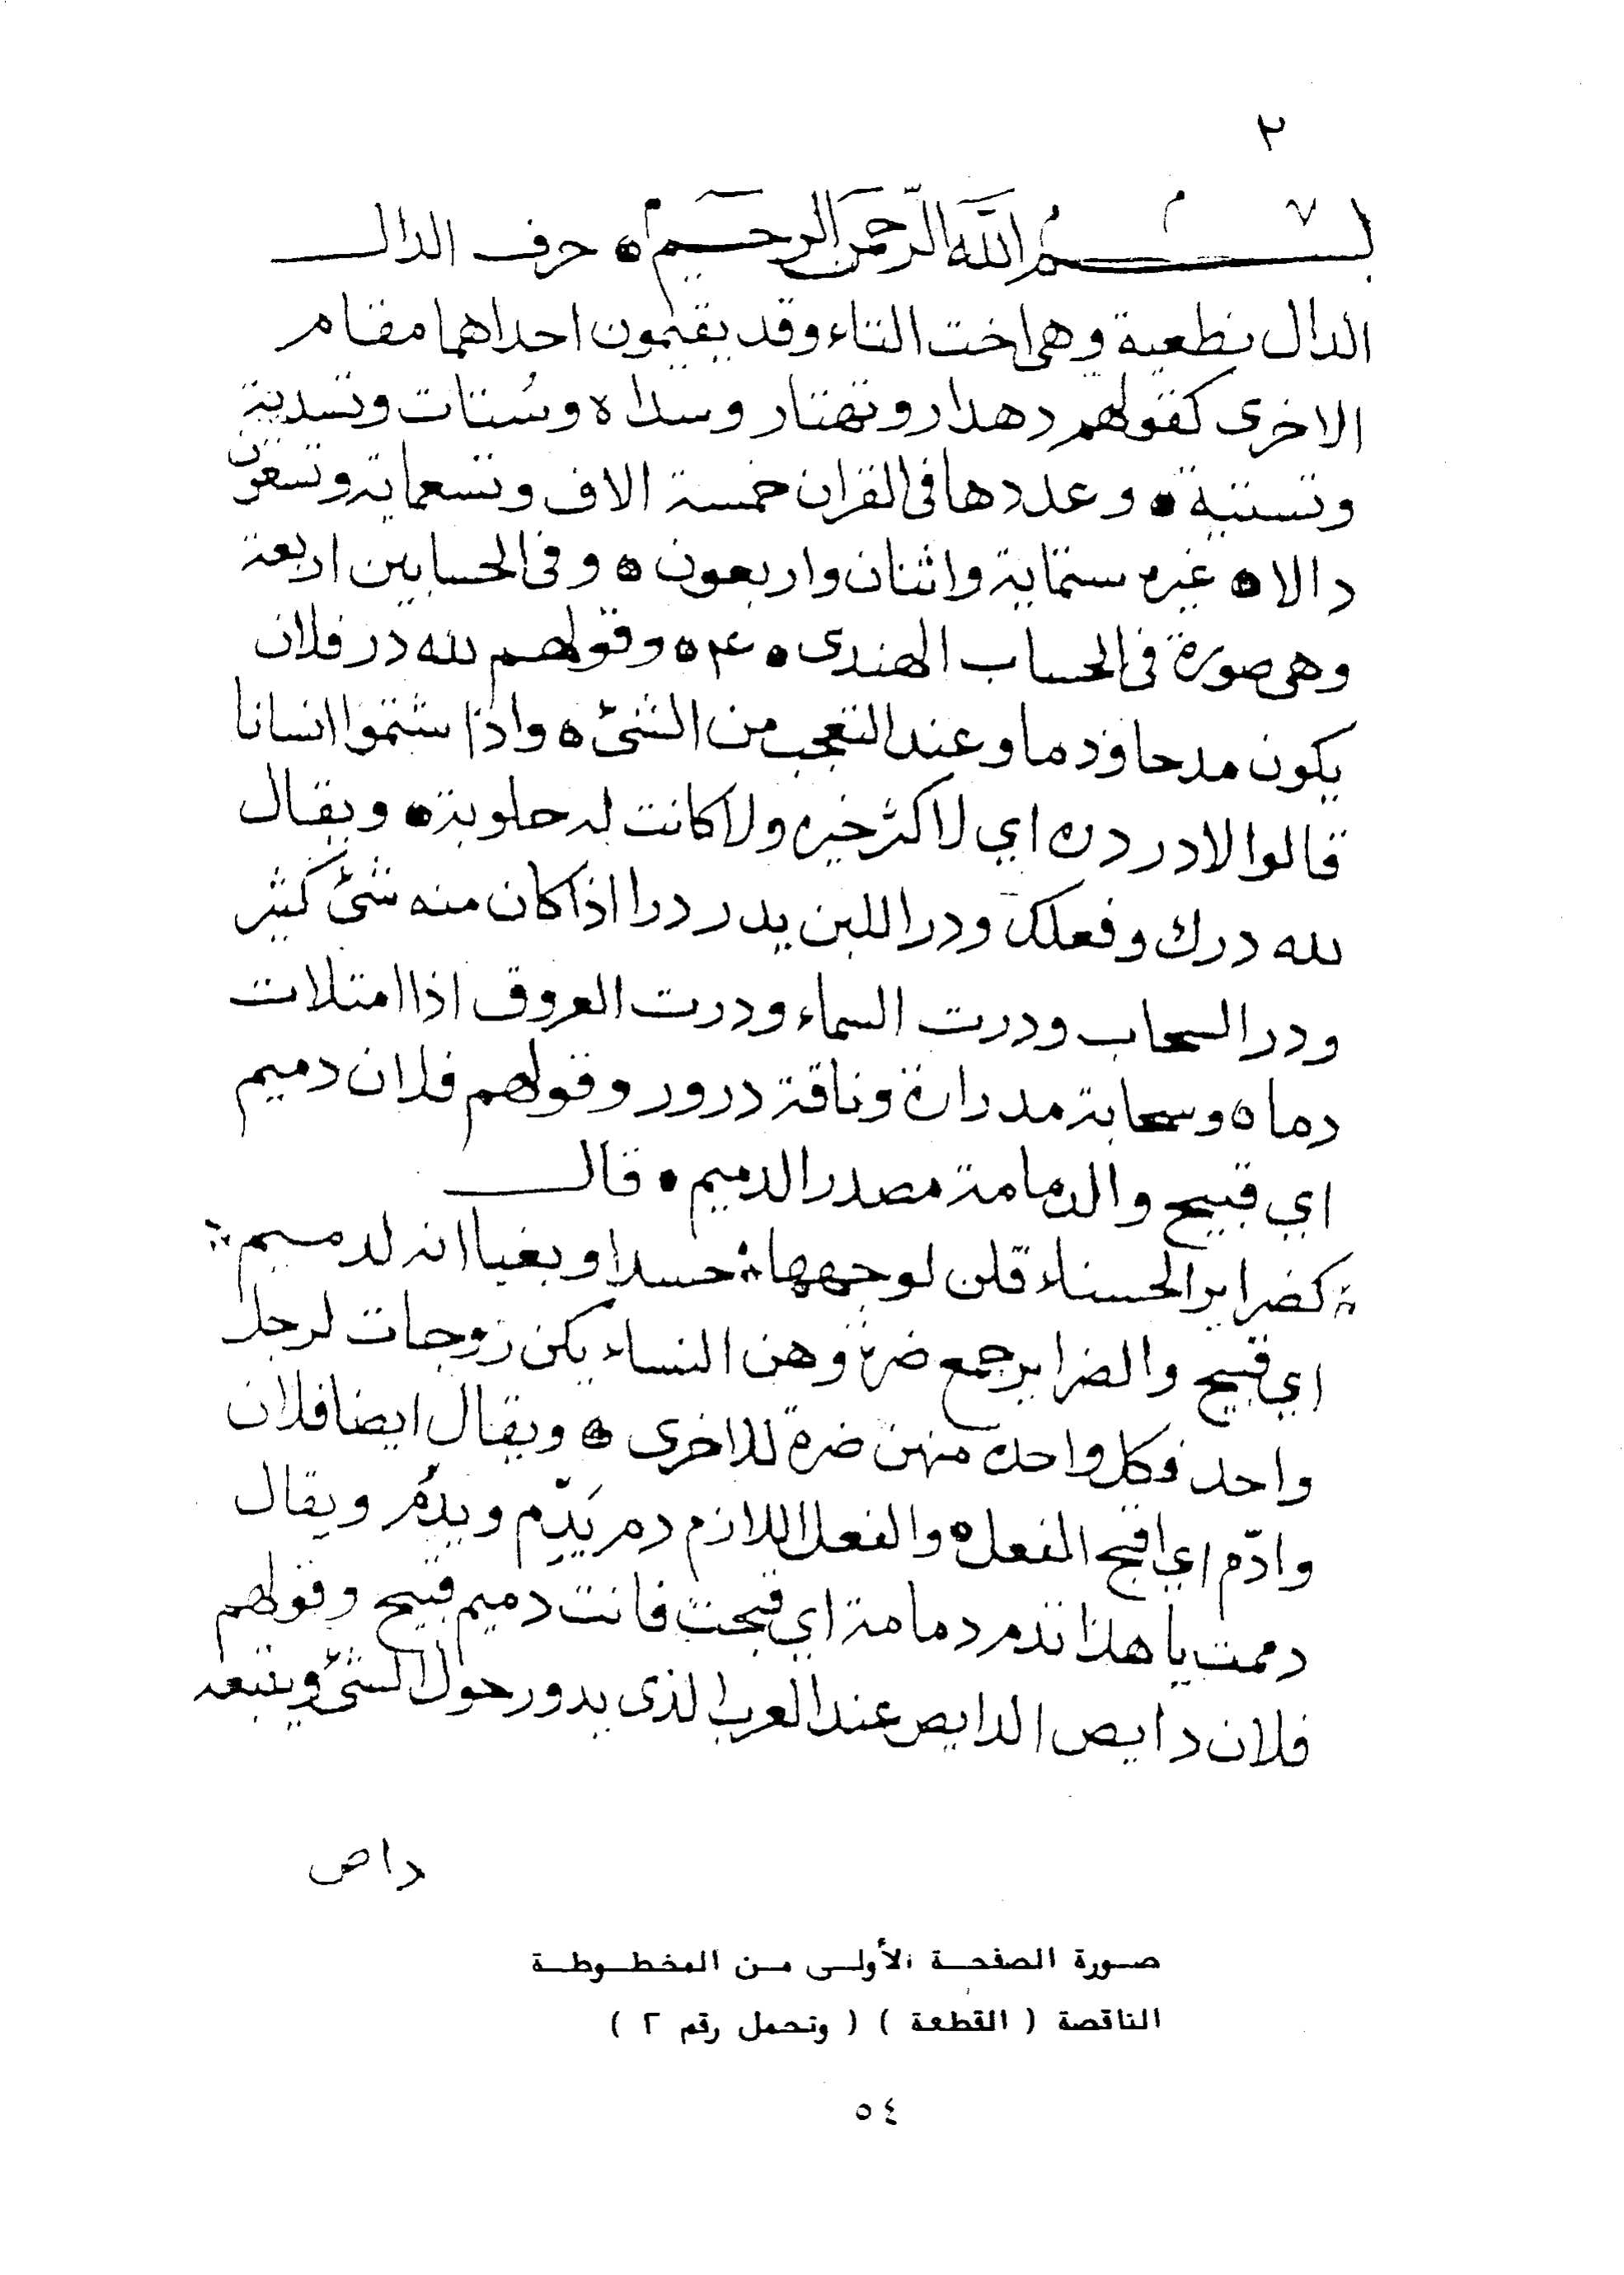 ٢
بســـــم الله الرَّحمن الرحيم ه حرف الدالـــ
الدال نطعية وهي اخت التاء وقد يقيمون احداهما مقام
الاخرى كقولهم دهدار وتهتار وسداه وسُتات وتسدية
وتستية ه وعددها في القران خمسة الاف وتسعماية وتسعون
دالا ه غيره ستماية واثنان واربعون ه وفي الحسابين اربعة
وهي صورة في الحساب الهندى ه ۴ ه وقولهم لله در فلان
يكون مدحا وذما وعند التعجب من الشئ ه واذا شتموا انسانا
قالوا لادر دره اي لا كثر خيره ولا كانت له حلوبة ه ويقال
لله درك وفعلك ودر اللبن يدر درا اذا كان منه شئ كثير
ودر السحاب ودرت السماء ودرت العروق اذا امتلات
دما ه وسحابة مدرارة وناقة درور وقولهم فلان دميم
اي قبيح والدمامة مصدر الدميم ه قالـــ
كضراير الحسناء قلن لوجهها ؞ حسدا وبغيا انه لدميم ؞
اي قبيح والضراير جمع ضرة وهن النساء يكن زوجات لرجل
واحد فكل واحدة منهن ضرة للاخرى ه ويقال ايضا فلان
وادّم اي اقبح الفعل ه والفعل اللازم دم يَدِّم ويدُم ويقال
دممت يا هذا تدم دمامة اي قبحت فانت دميم قبيح وقولهم
فلان دايص الدايص عند العرب الذى يدور حول الشئ ويتبعه
داص
صورة الصفحة الأولى من المخطوطة
الناقصة ( القطعة ) ( وتحمل رقم ٢ )
٥٤